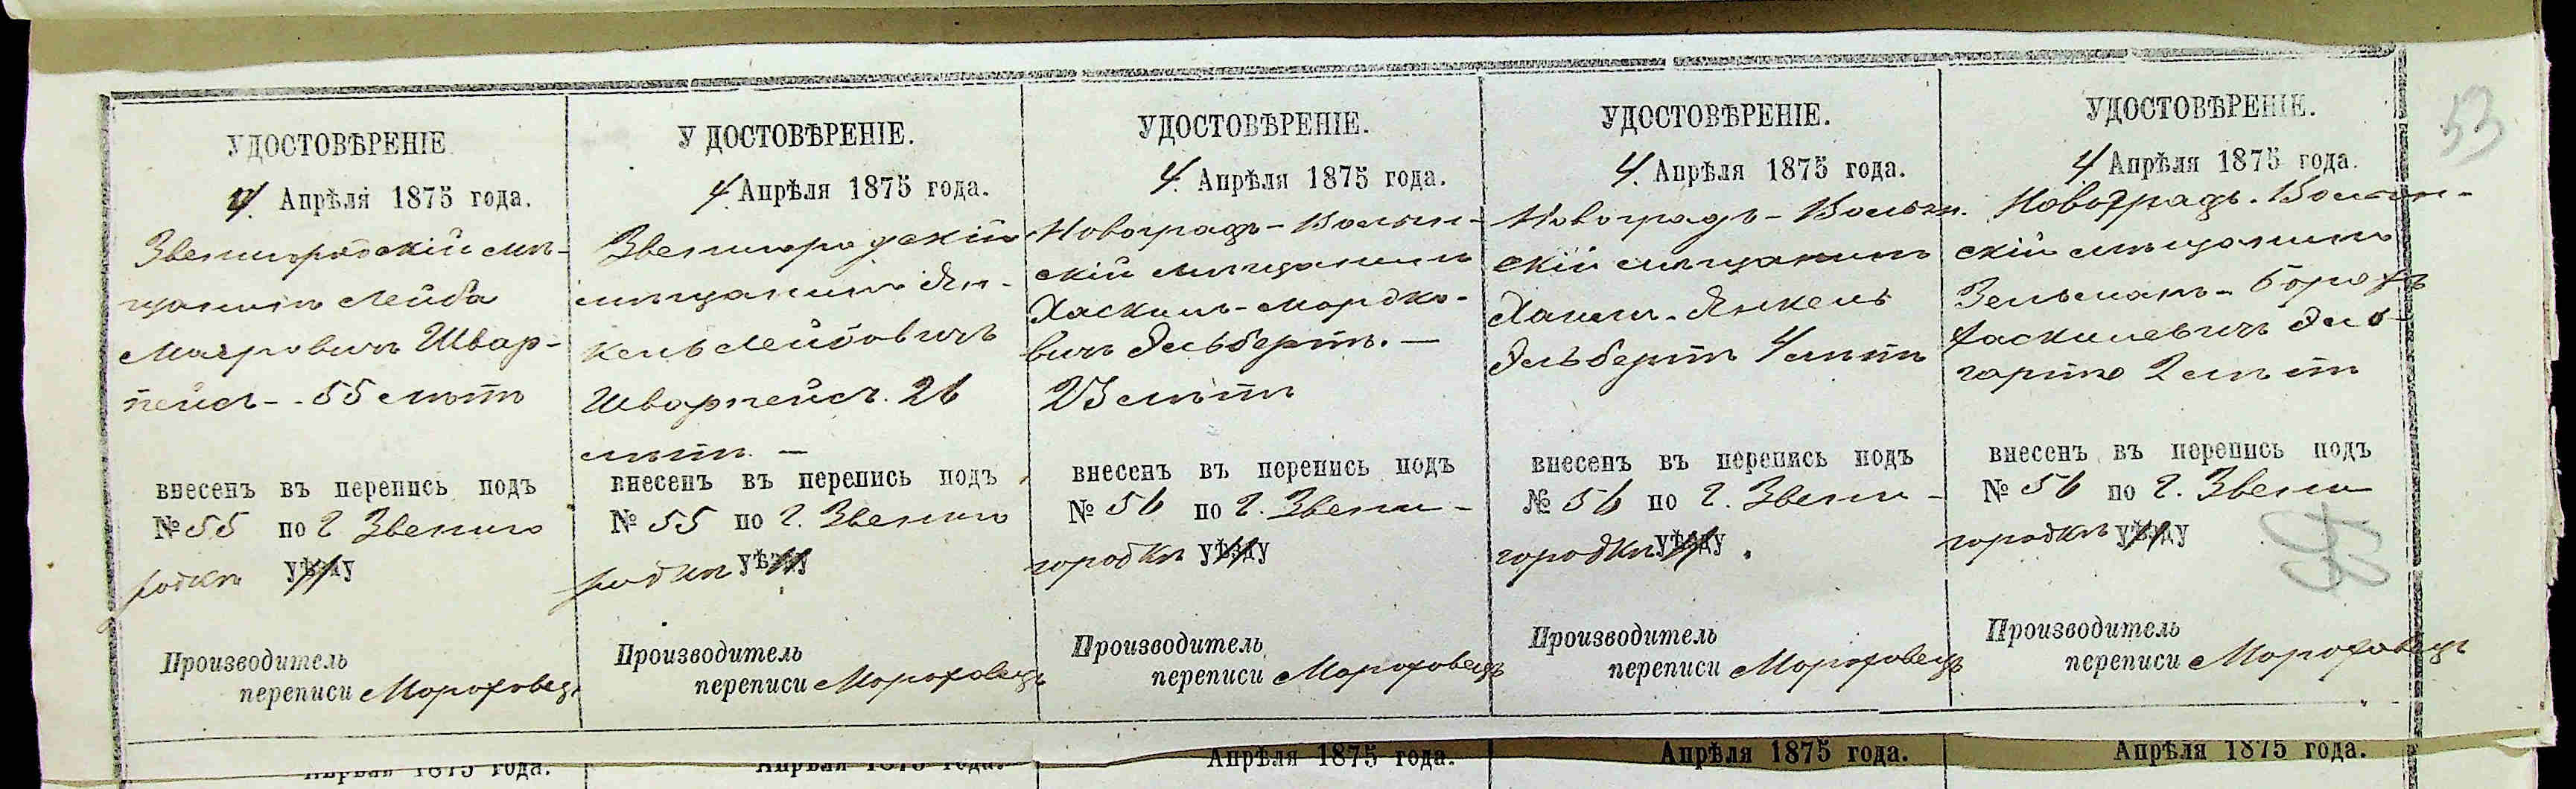 53
УДОСТОВѢРЕНІЕ
4. Апрѣля 1875 года.
Звенигородскій мѣ-
щанинъ Лейба
Маэровичъ Швар-
пейсъ - 55 лѣтъ
внесенъ въ перепись подъ
№ 55 по г Звениго
родкѣ уѣзду
Производитель
переписи Мороховец
УДОСТОВѢРЕНІЕ.
4. Апрѣля 1875 года.
Звенигородскій
мѣщанинъ Ян-
кель Лейбовичъ
Шварпейсъ. 26
лѣтъ. —
внесенъ въ перепись подъ
№ 55 по г. Звениго
родкѣ уѣзду
Производитель
переписи Мороховецъ
УДОСТОВѢРЕНІЕ.
4. Апрѣля 1875 года.
Новоградъ-Волын-
скій мѣщанинъ
Хаскиль-Мордко-
вичъ Эльбертъ. —
23 лѣтъ
внесенъ въ перепись подъ
№ 56 по г. Звени-
городкѣ уѣзду
Производитель
переписи Мороховецъ
УДОСТОВѢРЕНІЕ.
4. Апрѣля 1875 года.
Новоградъ-Волын.
скій мѣщанинъ
Хаим-Янкель
Эльбертъ 4 лѣтъ
внесенъ въ перепись подъ
№ 56 по г. Звени-
городкѣ уѣзду
Производитель
переписи Мороховецъ
УДОСТОВѢРЕНІЕ.
4 Апрѣля 1875 года.
Новоградъ-Волын-
скій мѣщанинъ
Зельманъ-Борохъ
Хаскилевичъ
2 лѣтъ
внесенъ въ перепись подъ
№ 56 по г. Звени
городкѣ уѣзду
Производитель
переписи Мороховецъ
Апрѣля 1875 года.
Апрѣля 1875 года.
Апрѣля 1875 года.
Апрѣля 1875 года.
Апрѣля 1875 года.